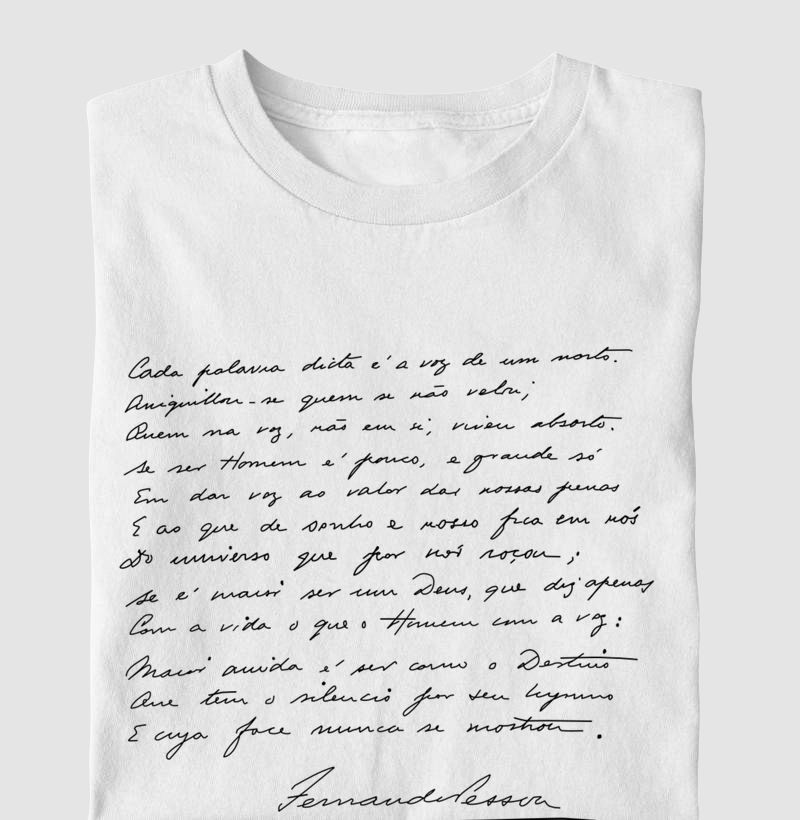 Cada palavra dicta é a voz de um morto.
Aniquillou-se quem se não velou;
Quem na voz, não em si, viveu absorto.
Se ser Homem é pouco, e grande só
Em dar voz ao valor das nossas penas
E ao que de sonho e nosso fica em nós
Do universo que por nós roçou;
Se é maior ser um Deus, que diz apenas
Com a vida o que o Homem com a voz:
Maior ainda é ser como o Destino
Que tem o silencio por seu hymno
E cuja face nunca se mostrou.
Fernando Pessoa